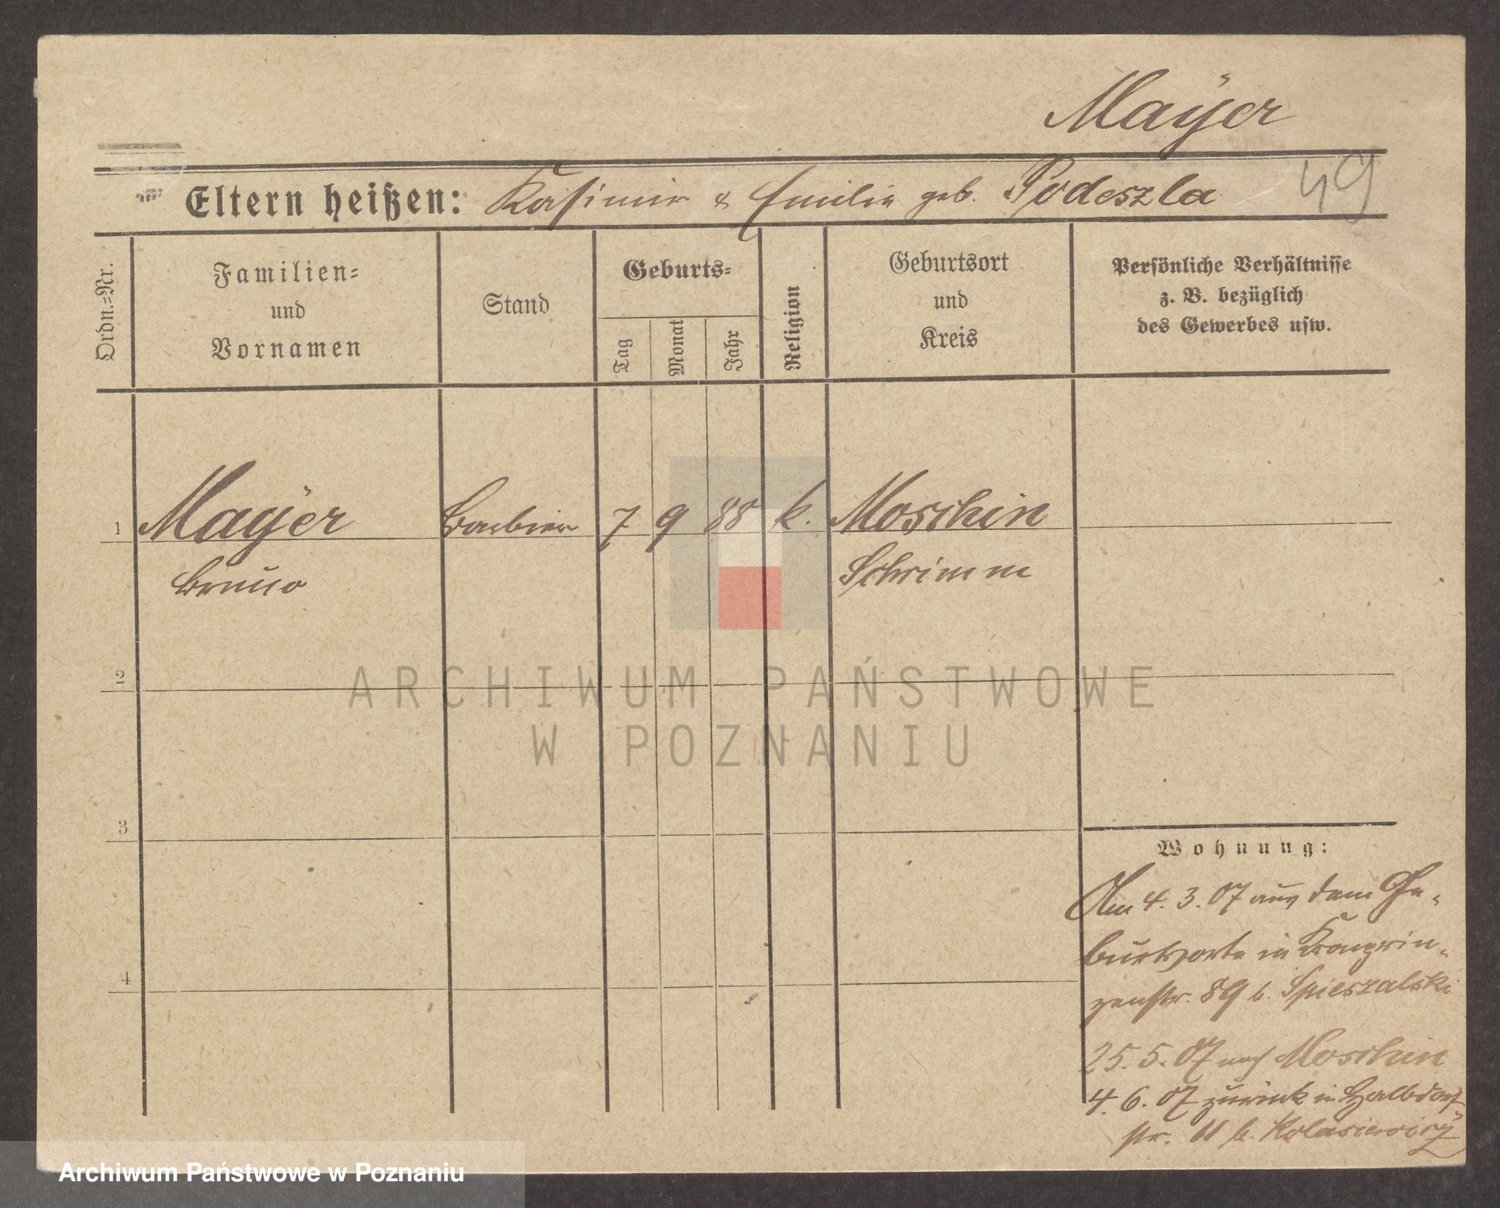 Mayer
49
Eltern heißen: Kasimir & Emilie geb. Podeszla
Ordn.-Nr.
Familien-
und
Vornamen
Stand
Geburts-
Tag
Monat
Jahr
Religion
Geburtsort
und
Kreis
Persönliche Verhältnisse
z. B. bezüglich
des Gewerbes usw.
1 Mayer Barbier 7 9 88 k. Moschin
Bruno Schrimm
2
3
4
Wohnung:
Am 4. 3. 07 aus dem Ge-
burtsorte in Kronprin-
zenstr. 89 b. Spieszalski
25. 5. 07 nach Moschin
4. 6. 07 zurück in Halbdorf-
str. 11 b.
ARCHIWUM PAŃSTWOWE
W POZNANIU
Archiwum Państwowe w Poznaniu